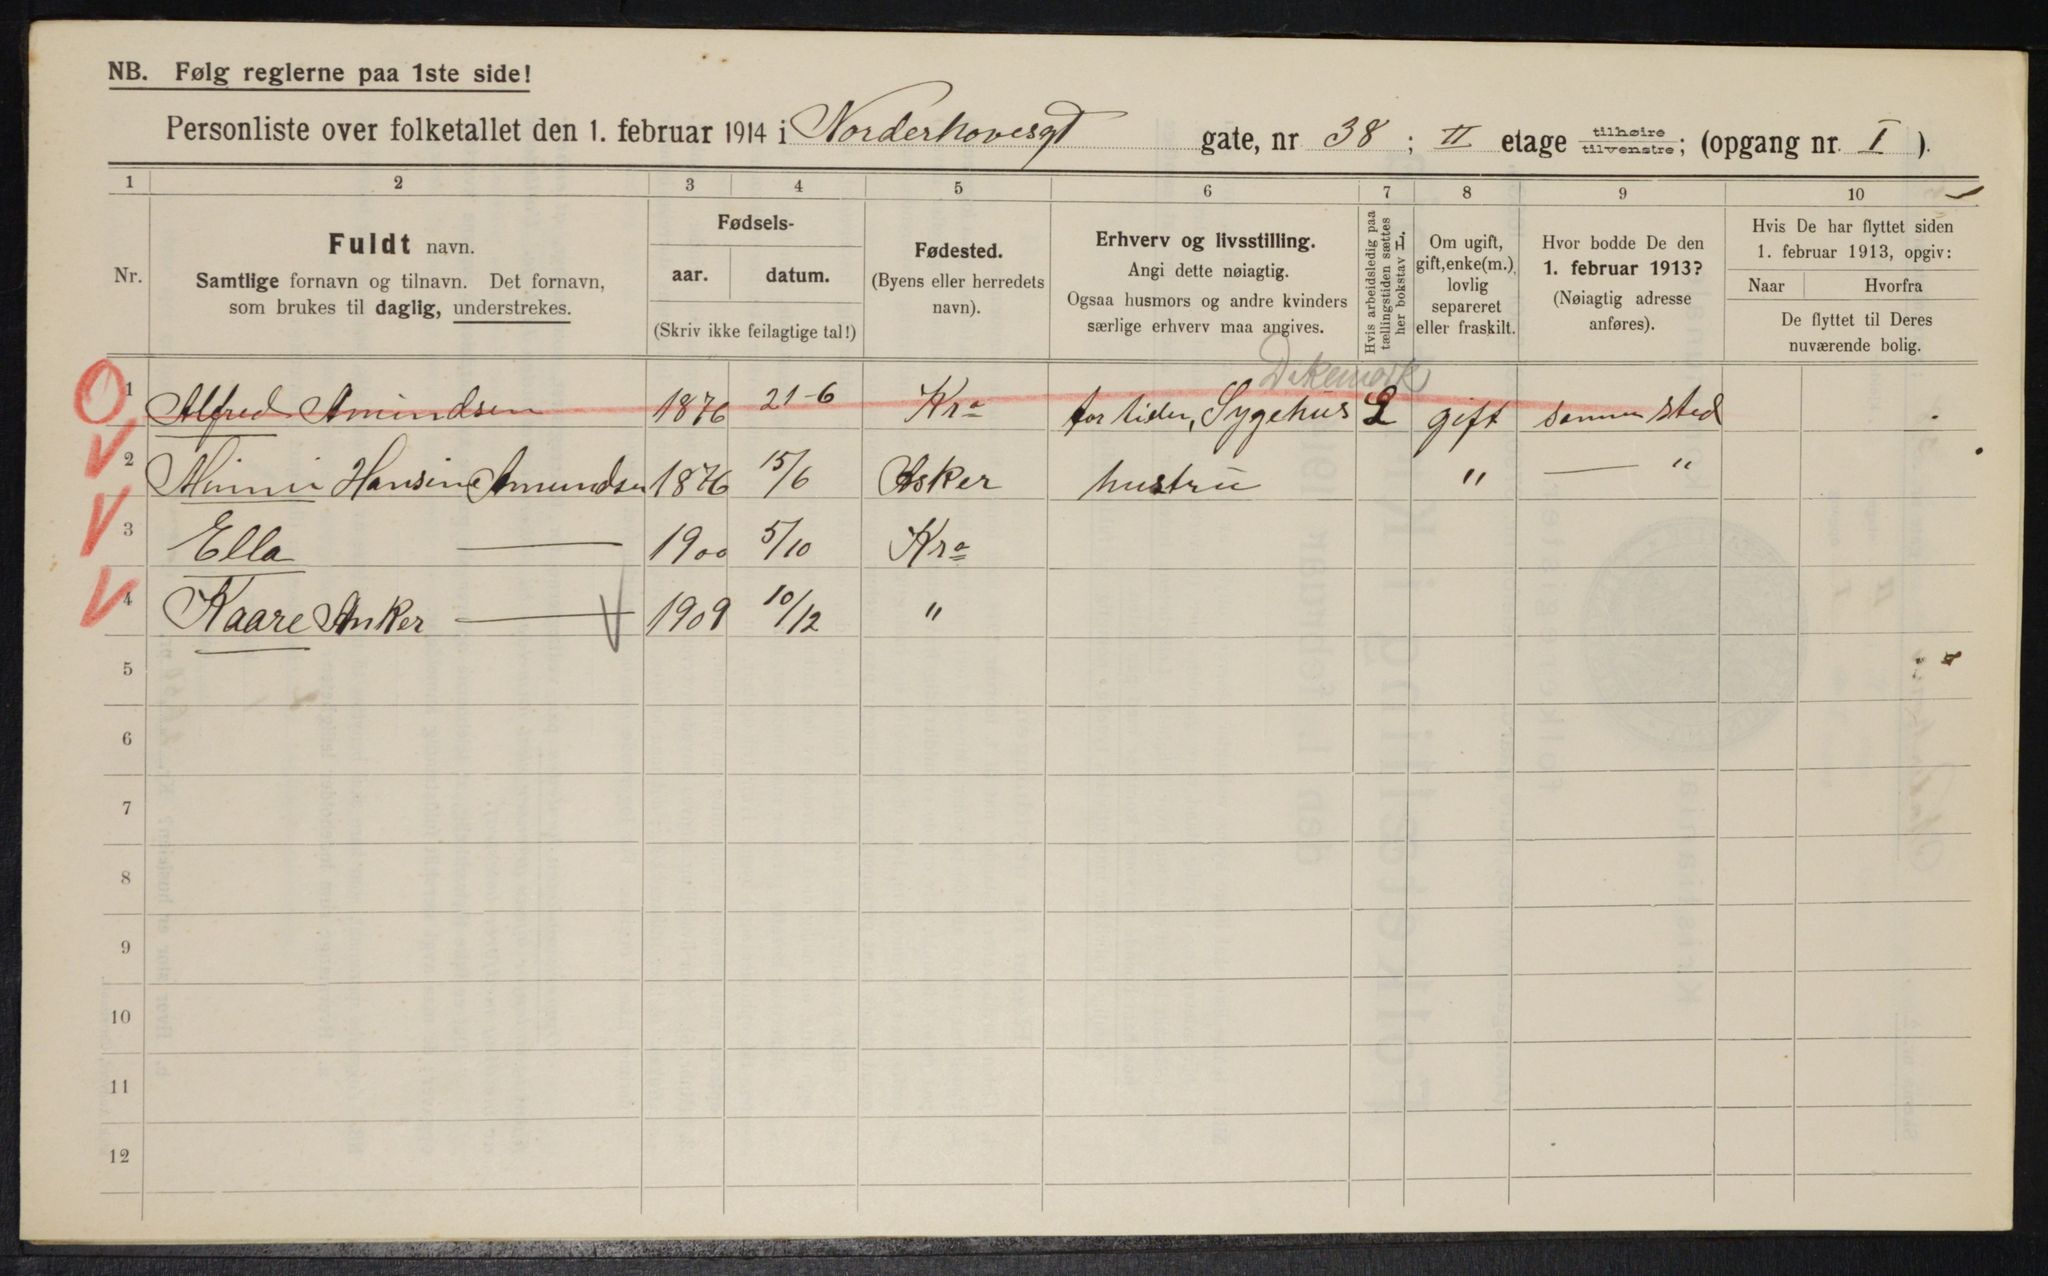 NB. Følg reglerne paa 1ste side!
Personliste over folketallet den 1. februar 1914 i Norderhovesgt gate, nr 38 ; II etage tilhøire tilvenstre; (opgang nr. I ).
1 2 3 4 5 6 7 8 9 10
Nr.
Fuldt navn.
Samtlige fornavn og tilnavn. Det fornavn,
som brukes til daglig, understrekes.
Fødsels-
aar. datum.
(Skriv ikke feilagtige tal!)
Fødested.
(Byens eller herredets
navn).
Erhverv og livsstilling.
Angi dette nøiagtig.
Ogsaa husmors og andre kvinders
særlige erhverv maa angives.
Hvis arbeidsledig paa
tællingstiden sættes
her bokstav L.
Om ugift,
gift, enke(m.),
lovlig
separeret
eller fraskilt.
Hvor bodde De den
1. februar 1913?
(Nøiagtig adresse
anføres).
Hvis De har flyttet siden
1. februar 1913, opgiv:
Naar Hvorfra
De flyttet til Deres
nuværende bolig.
Dikemark
1 Alfred Amundsen 1876 21-6 Kra for tiden, Sygehus L gift samme sted
2 Minni Hansine Amundsen 1876 15/6 Asker hustru " — "
3 Ella — 1900 5/10 Kra
4 Kaare Anker — 1909 10/12 "
5
6
7
8
9
10
11
12